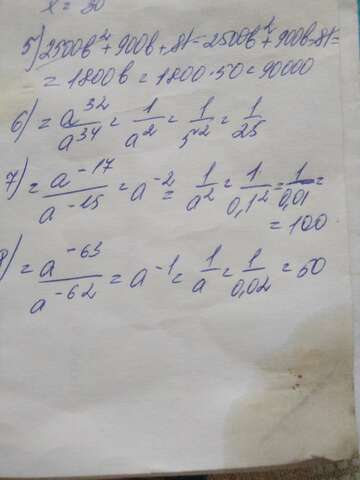 x = 30
5) 2500b² + 900b + 81 - 2500b² + 900b - 81 =
= 1800b = 1800 · 50 = 90000
6) = a³²/a³⁴ = 1/a² = 1/5² = 1/25
7) = a⁻¹⁷/a⁻¹⁵ = a⁻² = 1/a² = 1/0,1² = 1/0,01 =
= 100
8) = a⁻⁶³/a⁻⁶² = a⁻¹ = 1/a = 1/0,02 = 50